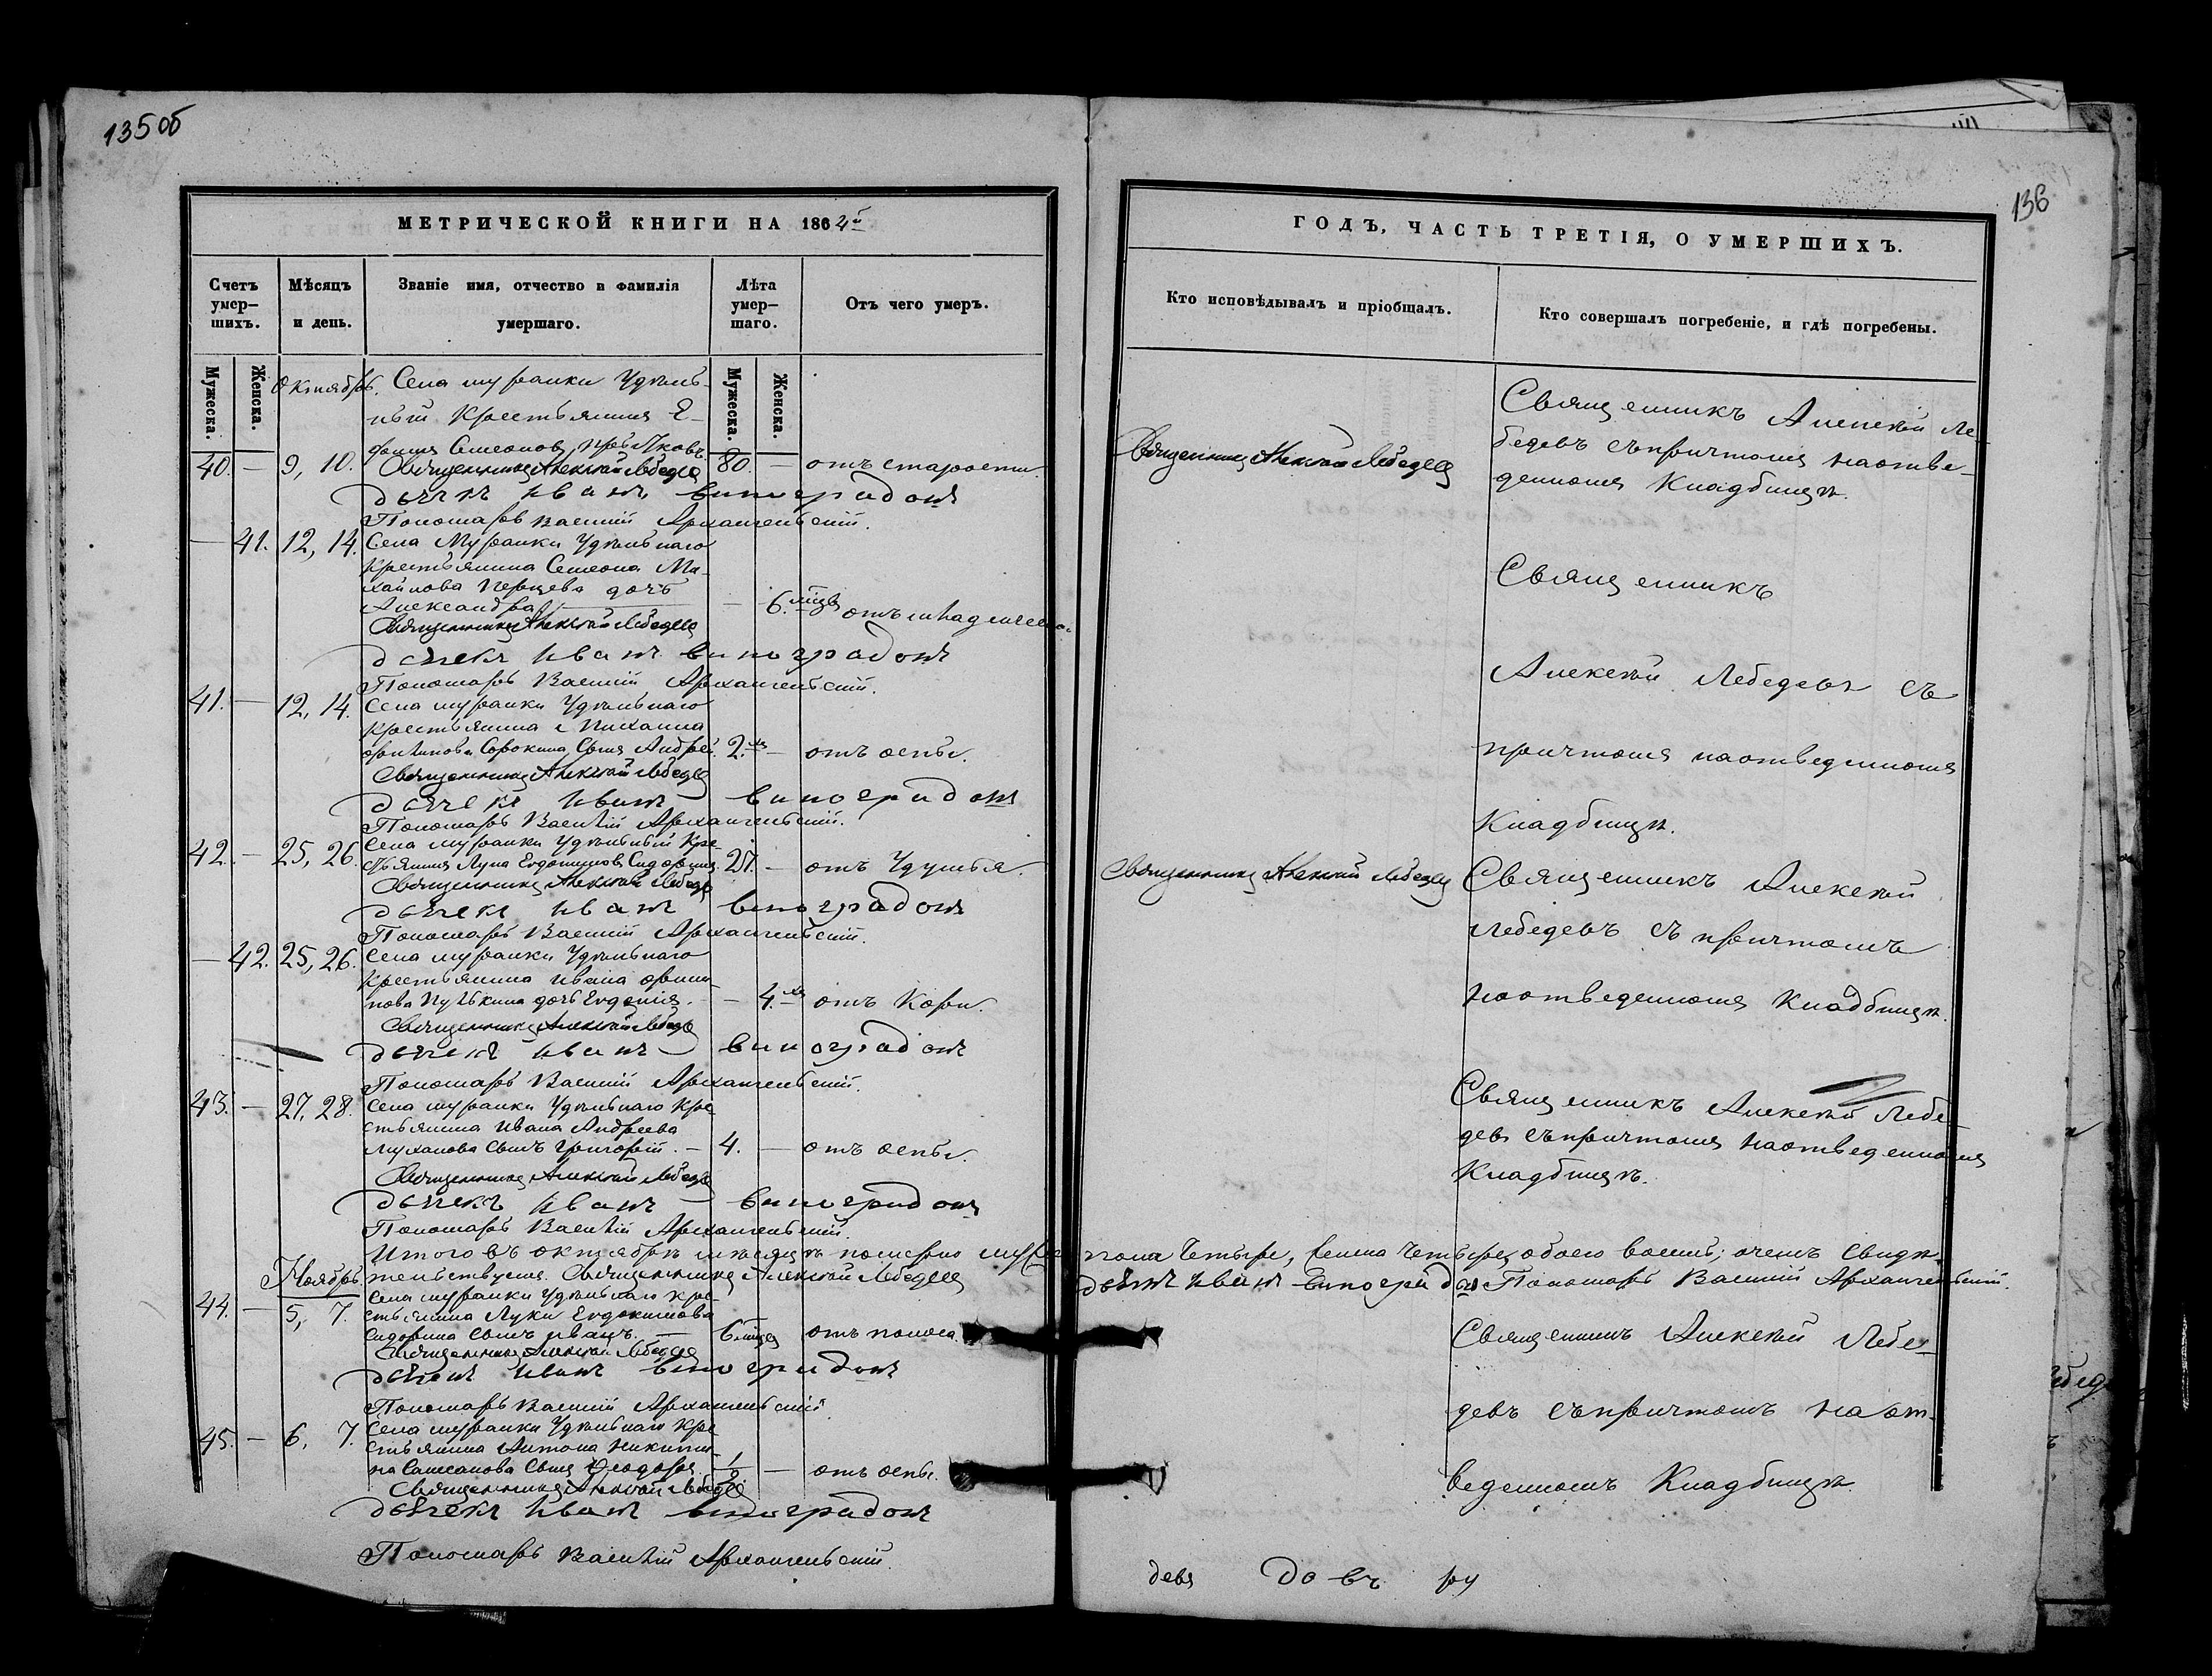 135 об
136
МЕТРИЧЕСКОЙ КНИГИ НА 1864й
ГОДЪ, ЧАСТЬ ТРЕТІЯ, О УМЕРШИХЪ.
Счетъ умер-шихъ.
Мѣсяцъ и день.
Званіе имя, отчество и фамилія умершаго.
Лѣта умер-шаго.
Отъ чего умеръ.
Кто исповѣдывалъ и пріобщалъ.
Кто совершалъ погребеніе, и гдѣ погребены.
Мужеска.
Женска.
Мужеска.
Женска.
Октябрь.
Села Муранки Удѣль-
ный Крестьянинъ Е-
Симеоновъ
40. — 9, 10. 80. — отъ старости
Священникъ Алексѣй Лебедевъ
Дьячекъ Иванъ Виноградовъ
Пономарь Василій Архангельскій.
Священникъ Алексѣй Лебедевъ
Священникъ Алексѣй Ле-
бедевъ съ причтомъ на отве-
денномъ Кладбищѣ.
— 41. 12, 14. Села Муранки Удѣльнаго
Крестьянина Симеона Ми-
хайлова дочь
Александра — 6. мцвъ отъ
Священникъ Алексѣй Лебедевъ
Дьячекъ Иванъ Виноградовъ
Пономарь Василій Архангельскій.
Священникъ
Алексѣй Лебедевъ съ
причтомъ на отведенномъ
Кладбищѣ.
41. — 12, 14. Села Муранки Удѣльнаго
Крестьянина
Сорокина Сынъ Андрей. 2.хъ — отъ оспы.
Священникъ Алексѣй Лебедевъ
Дьячекъ Иванъ Виноградовъ
Пономарь Василій Архангельскій.
42. — 25, 26. Села Муранки Удѣльный Кре-
стьянинъ Лука Евдокимовъ Сидоринъ. 27. — отъ Удушья.
Священникъ Алексѣй Лебедевъ
Дьячекъ Иванъ Виноградовъ
Пономарь Василій Архангельскій.
Священникъ Алексѣй Лебедевъ
Священникъ Алексѣй
Лебедевъ съ причтомъ
на отведенномъ Кладбищѣ.
— 42. 25, 26. Села Муранки Удѣльнаго
Крестьянина Ивана
дочь Евдокія. — 4.хъ отъ Кори.
Священникъ Алексѣй Лебедевъ
Дьячекъ Иванъ Виноградовъ
Пономарь Василій Архангельскій.
43. — 27, 28. Села Муранки Удѣльнаго Кре-
стьянина Ивана Андреева
Муханова Сынъ Григорій. — 4. — отъ оспы.
Священникъ Алексѣй Лебедевъ
Дьячекъ Иванъ Виноградовъ
Пономарь Василій Архангельскій.
Священникъ Алексѣй Лебе-
девъ съ причтомъ на отведенномъ
Кладбищѣ.
Итого въ октябрѣ мѣсяцѣ померло муж. пола Четыре, женска четыре, обоего восемь; о чемъ свидѣ-
тельствуемъ. Священникъ Алексѣй Лебедевъ Дьячекъ Иванъ Виноградовъ Пономарь Василій Архангельскій.
Ноябрь.
44. — 5, 7. Села Муранки Удѣльнаго Кре-
стьянина Луки Евдокимова
Сидорина Сынъ Иванъ. — 6 мцвъ отъ поноса.
Священникъ Алексѣй Лебедевъ
Дьячекъ Иванъ Виноградовъ
Пономарь Василій Архангельскій.
Священникъ Алексѣй Лебе-
девъ съ причтомъ на от-
веденномъ Кладбищѣ.
45. — 6, 7. Села Муранки Удѣльнаго Кре-
стьянина Антона Никити-
на Сынъ Ѳеодоръ. 1/2 — отъ оспы.
Священникъ Алексѣй Лебедевъ
Дьячекъ Иванъ Виноградовъ
Пономарь Василій Архангельскій.
до въ ру